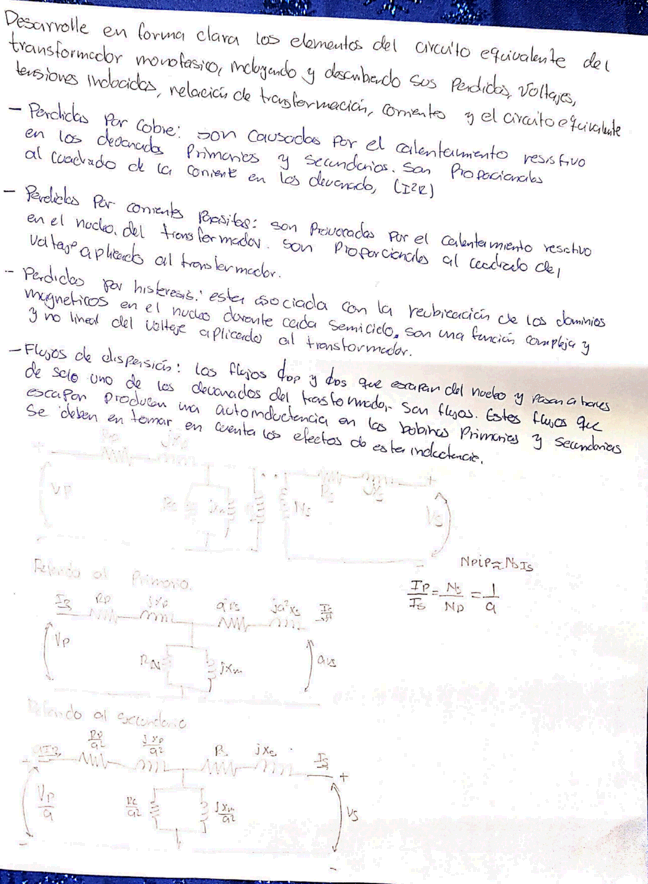 Desarrolle en forma clara los elementos del circuito equivalente del
transformador monofasico, incluyendo y describiendo sus Perdidas, Voltajes,
tensiones inducidas, relación de transformación, corriente y el circuito equivalente
- Perdidas Por Cobre: son causadas por el calentamiento resistivo
en los devanados Primarios y secundarios. son Proporcionales
al cuadrado de la corriente en los devanado, (I²R)
- Perdidas Por corrientes Parasitas: son Provocadas Por el calentamiento resistivo
en el nucleo del transformador. son Proporcionales al cuadrado del
voltaje aplicado al transformador.
- Perdidas por histeresis: estan asociada con la reubicación de los dominios
magneticos en el nucleo durante cada semiciclo, son una función compleja y
y no lineal del voltaje aplicado al transformador.
- Flujos de dispersión: los flujos ϕop y ϕos que escapan del nucleo y Pasan a traves
de solo uno de los devanados del trasformador son flujos. Estos flujos que
escapan producen una autoinductancia en las bobinas Primarias y secundarias
se deben en tomar en cuenta los efectos de esta inductancia.
Rp jXp +
VP Rc jXm Ns Rs jXs Vs
NpiP≈NsIs
IP/Is = Ns/NP = 1/a
Referido al Primario.
Rp jXp a²rs ja²Xs
VP RN jXm avs
Referido al secundario
Rp/a² jXp/a² R jXs +
VP/a Rc/a² jXm/a² Vs